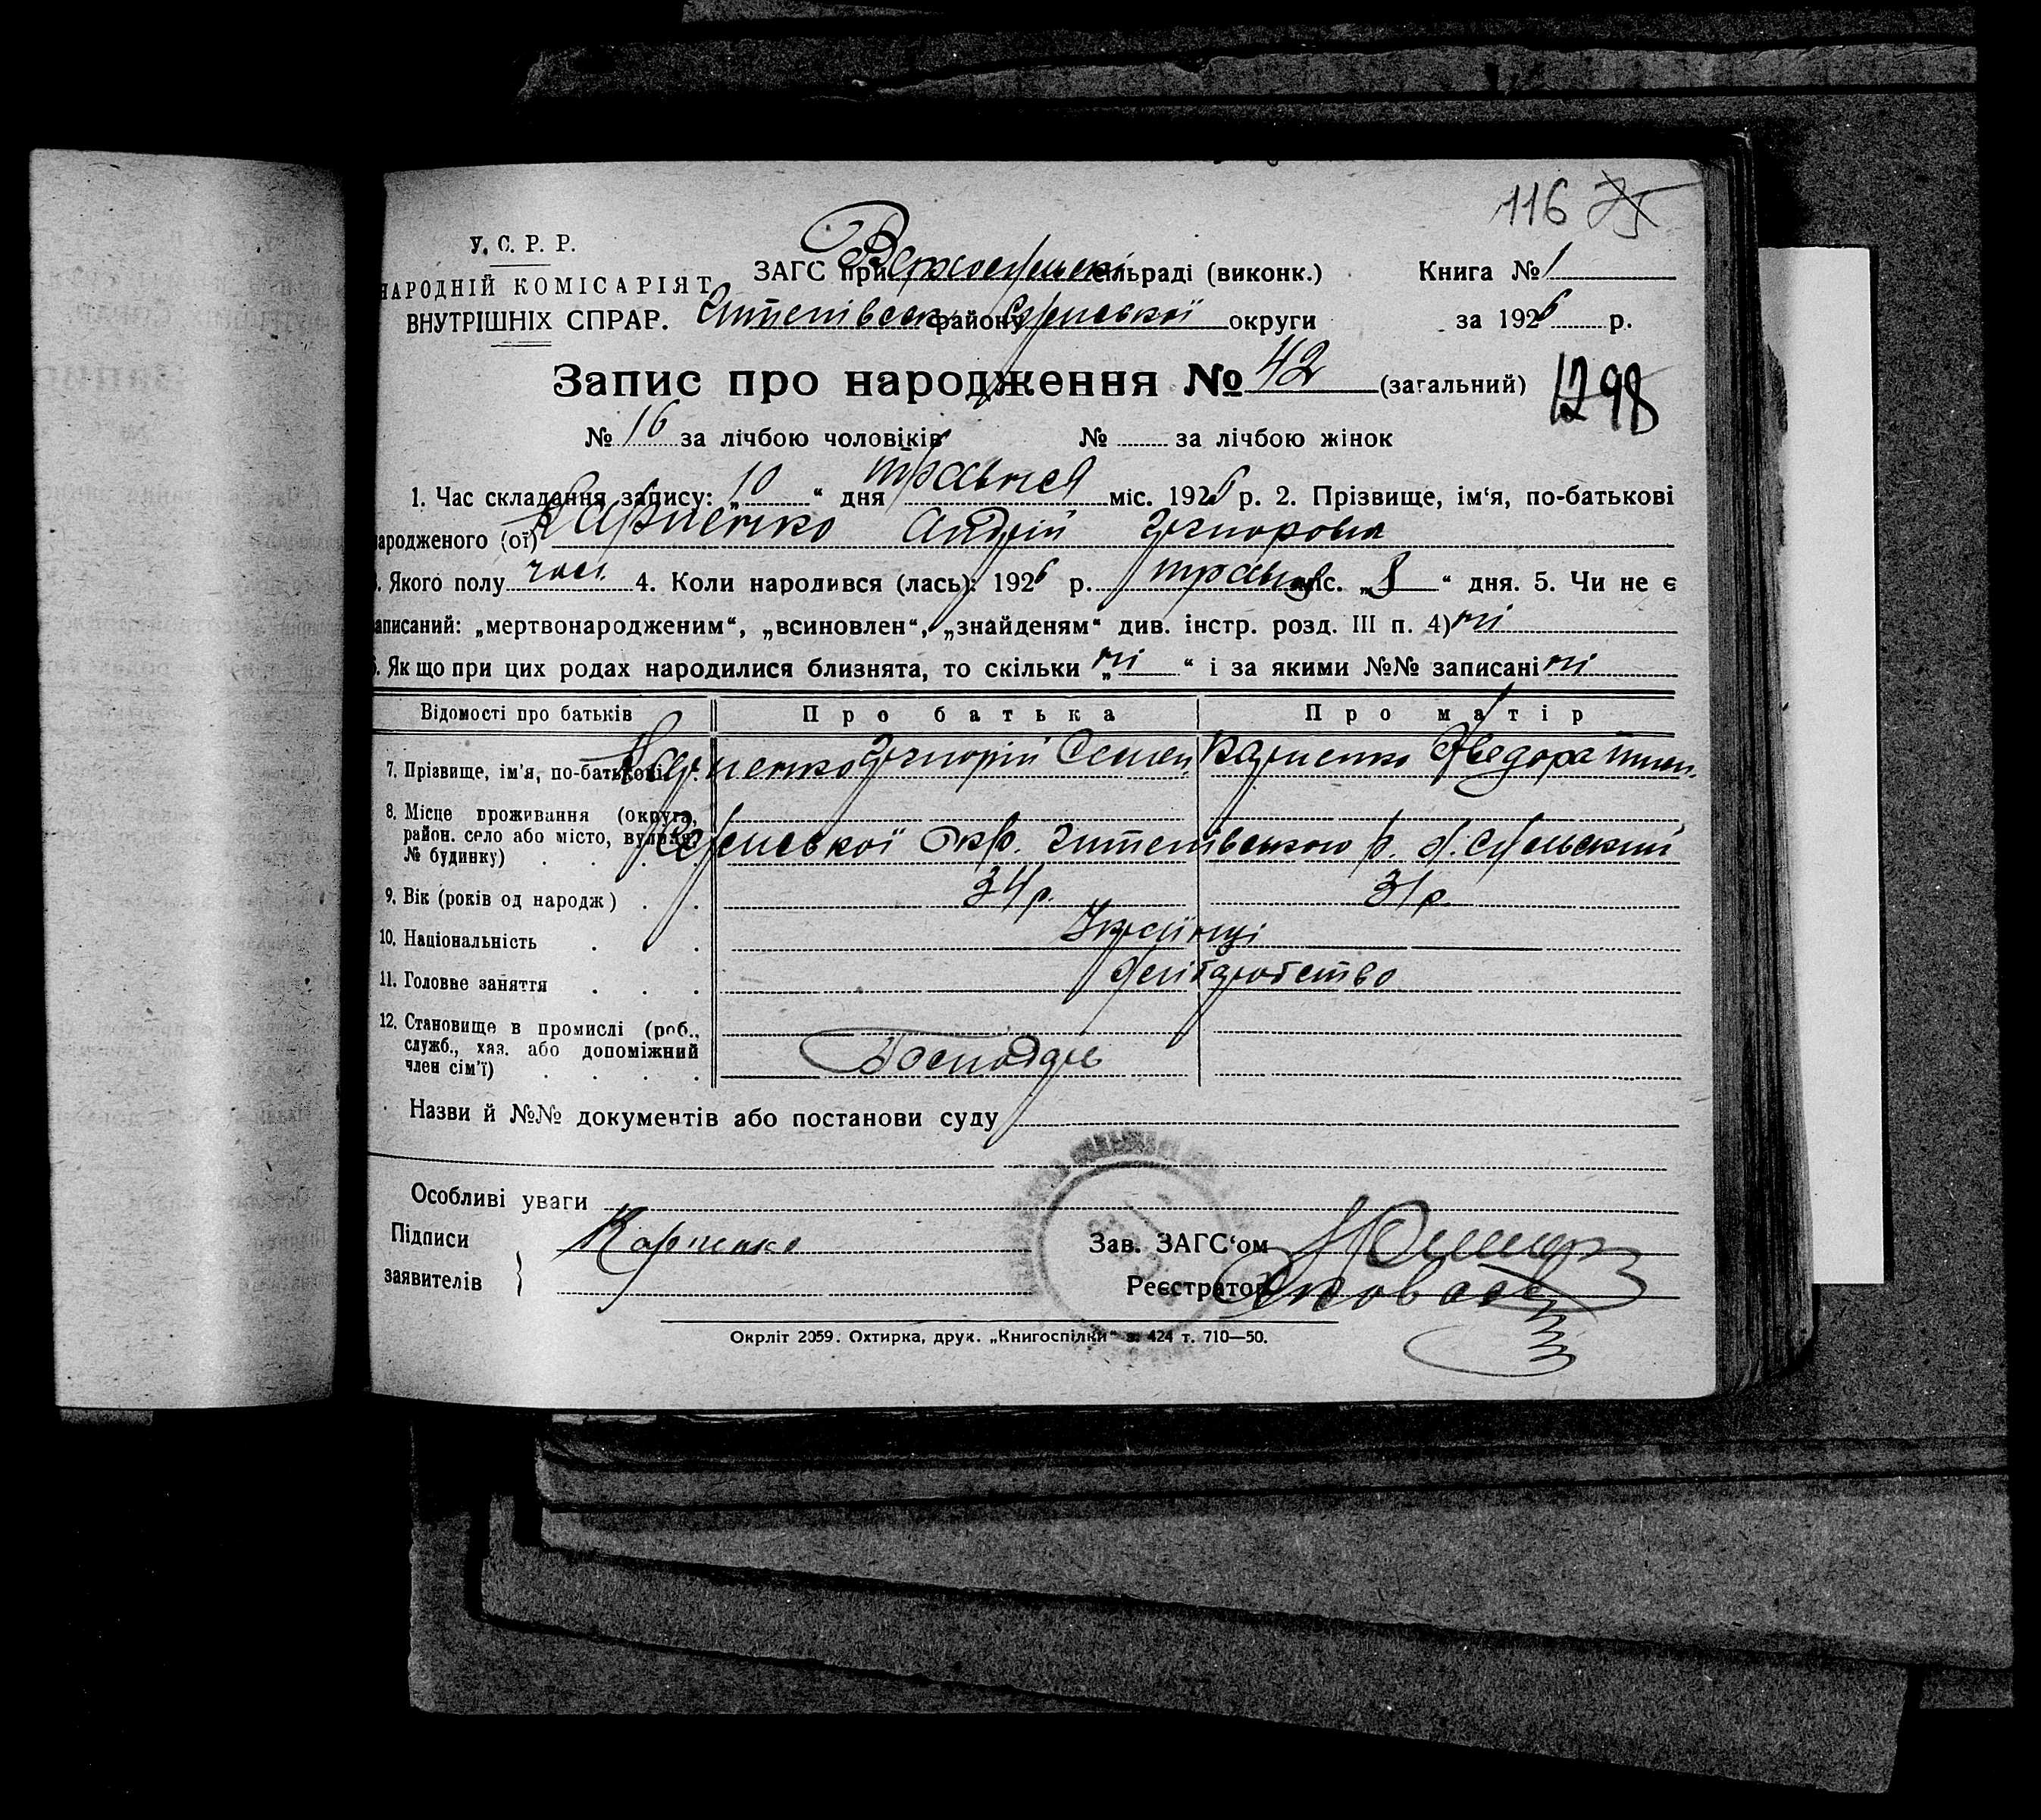 116
У. С. Р. Р.
НАРОДНІЙ КОМІСАРІЯТ
ВНУТРІШНІХ СПРАР.
ЗАГС при сільраді (виконк.)
району Сумської округи
Книга № 1
за 1926 р.
Запис про народження № 42 (загальний)
1298
№ 16 за лічбою чоловіків № за лічбою жінок
1. Час складання запису: „10“ дня травня міс. 1926 р. 2. Прізвище, ім‘я, по-батькові
народженого (ої) Карпенко Андрій Григоров
3. Якого полу чол. 4. Коли народився (лась): 1926 р. травня міс. „8“ дня. 5. Чи не є
записаний: „мертвонародженим“, „всиновлен“, „знайденям“ див. інстр. розд. III п. 4) ні
6. Якщо при цих родах народилися близнята, то скільки „ні“ і за якими №№ записані ні
Відомості про батьків Про батька Про матір
7. Прізвище, ім‘я, по-батькові Карпенко Григорій Семен. Карпенко Хведора
8. Місце проживання (округа,
район. село або місто, вулиця,
№ будинку) Сумської Окр. р.
9. Вік (років од народж) 34 р. 31 р.
10. Національність Українці
11. Головне заняття Хліборобство
12. Становище в промислі (роб.,
служб., хаз. або допоміжний
член сім‘ї) Господар
Назви й №№ документів або постанови суду
Особливі уваги
Підписи
заявителів
Карпенко
Зав. ЗАГС‘ом
Реєстратор
Окрліт 2059. Охтирка, друк. „Книгоспілки“ з. 424 т. 710—50.